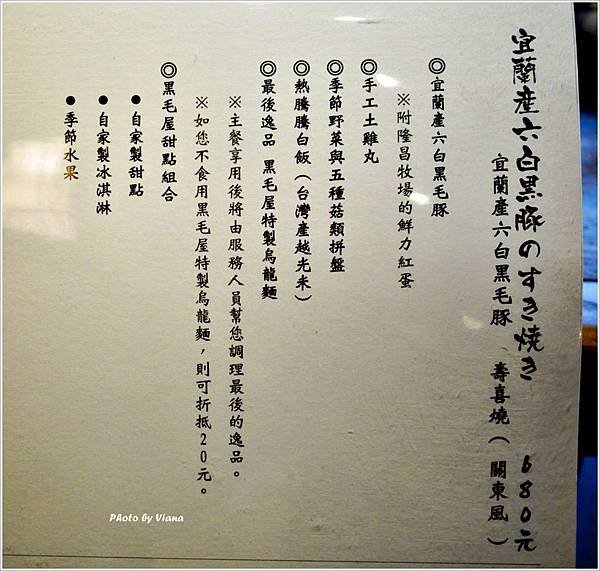 宜蘭產六白黑豚のすき焼き 680元
宜蘭產六白黑毛豚 壽喜燒(關東風)
◎宜蘭產六白黑毛豚
※附隆昌牧場的鮮力紅蛋
◎手工土雞丸
◎季節野菜與五種菇類拼盤
◎熱騰騰白飯(台灣產越光米)
◎最後逸品 黑毛屋特製烏龍麵
※主餐享用後將由服務人員幫您調理最後的逸品。
※如您不食用黑毛屋特製烏龍麵,則可折抵20元。
◎黑毛屋甜點組合
●自家製甜點
●自家製冰淇淋
●季節水果
Photo by Viana